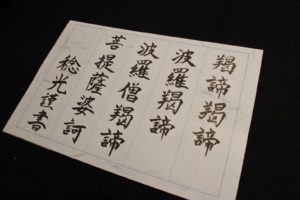 羯諦羯諦
波羅羯諦
波羅僧羯諦
菩提薩婆訶
稔光謹書